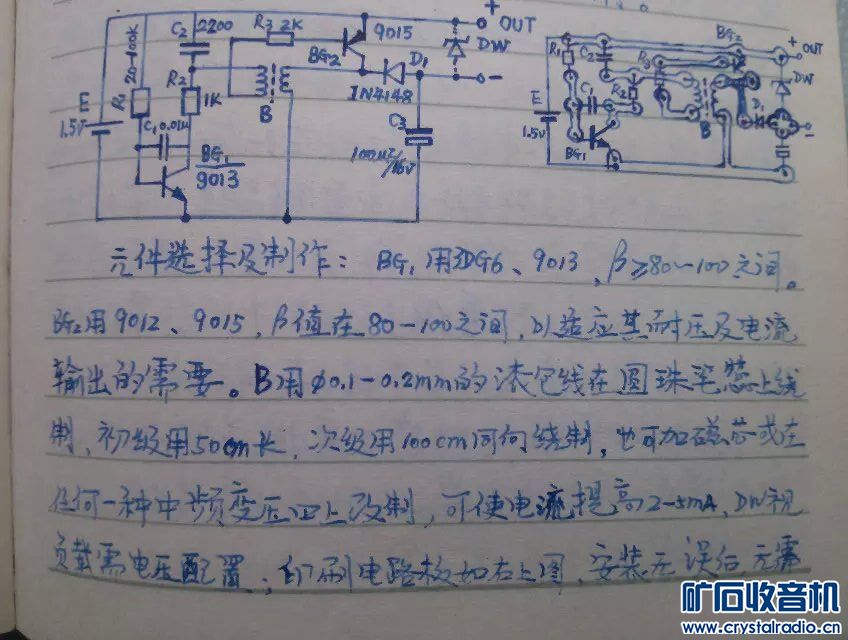 C₂ 2200
R₃ 2K
9015
+ OUT
BG₂
D₁
DW
-
R₁ 20-100K
R₂
1K
B
1N4148
E
1.5V
C₁ 0.01μ
C₃
100μ
BG₁
9013
BG₂
+ OUT
R₁
C₂
R₃
DW
E
1.5V
C₁
R₂
B
D₁
-
BG₁
元件选择及制作：BG₁用3DG6、9013，β≥80~100之间。
BG₂用9012、9015，β值在80-100之间，以适应其耐压及电流
输出的需要。B用φ0.1-0.2mm的漆包线在圆珠笔蕊上绕
制，初级用50cm长，次级用100cm同向绕制，也可加磁芯或在
任何一种中频变压四上改制，可使电流提高2-5mA，DW视
负载需电压配置，印刷电路板如右上图，安装无误后无需
矿石收音机
www.crystalradio.cn